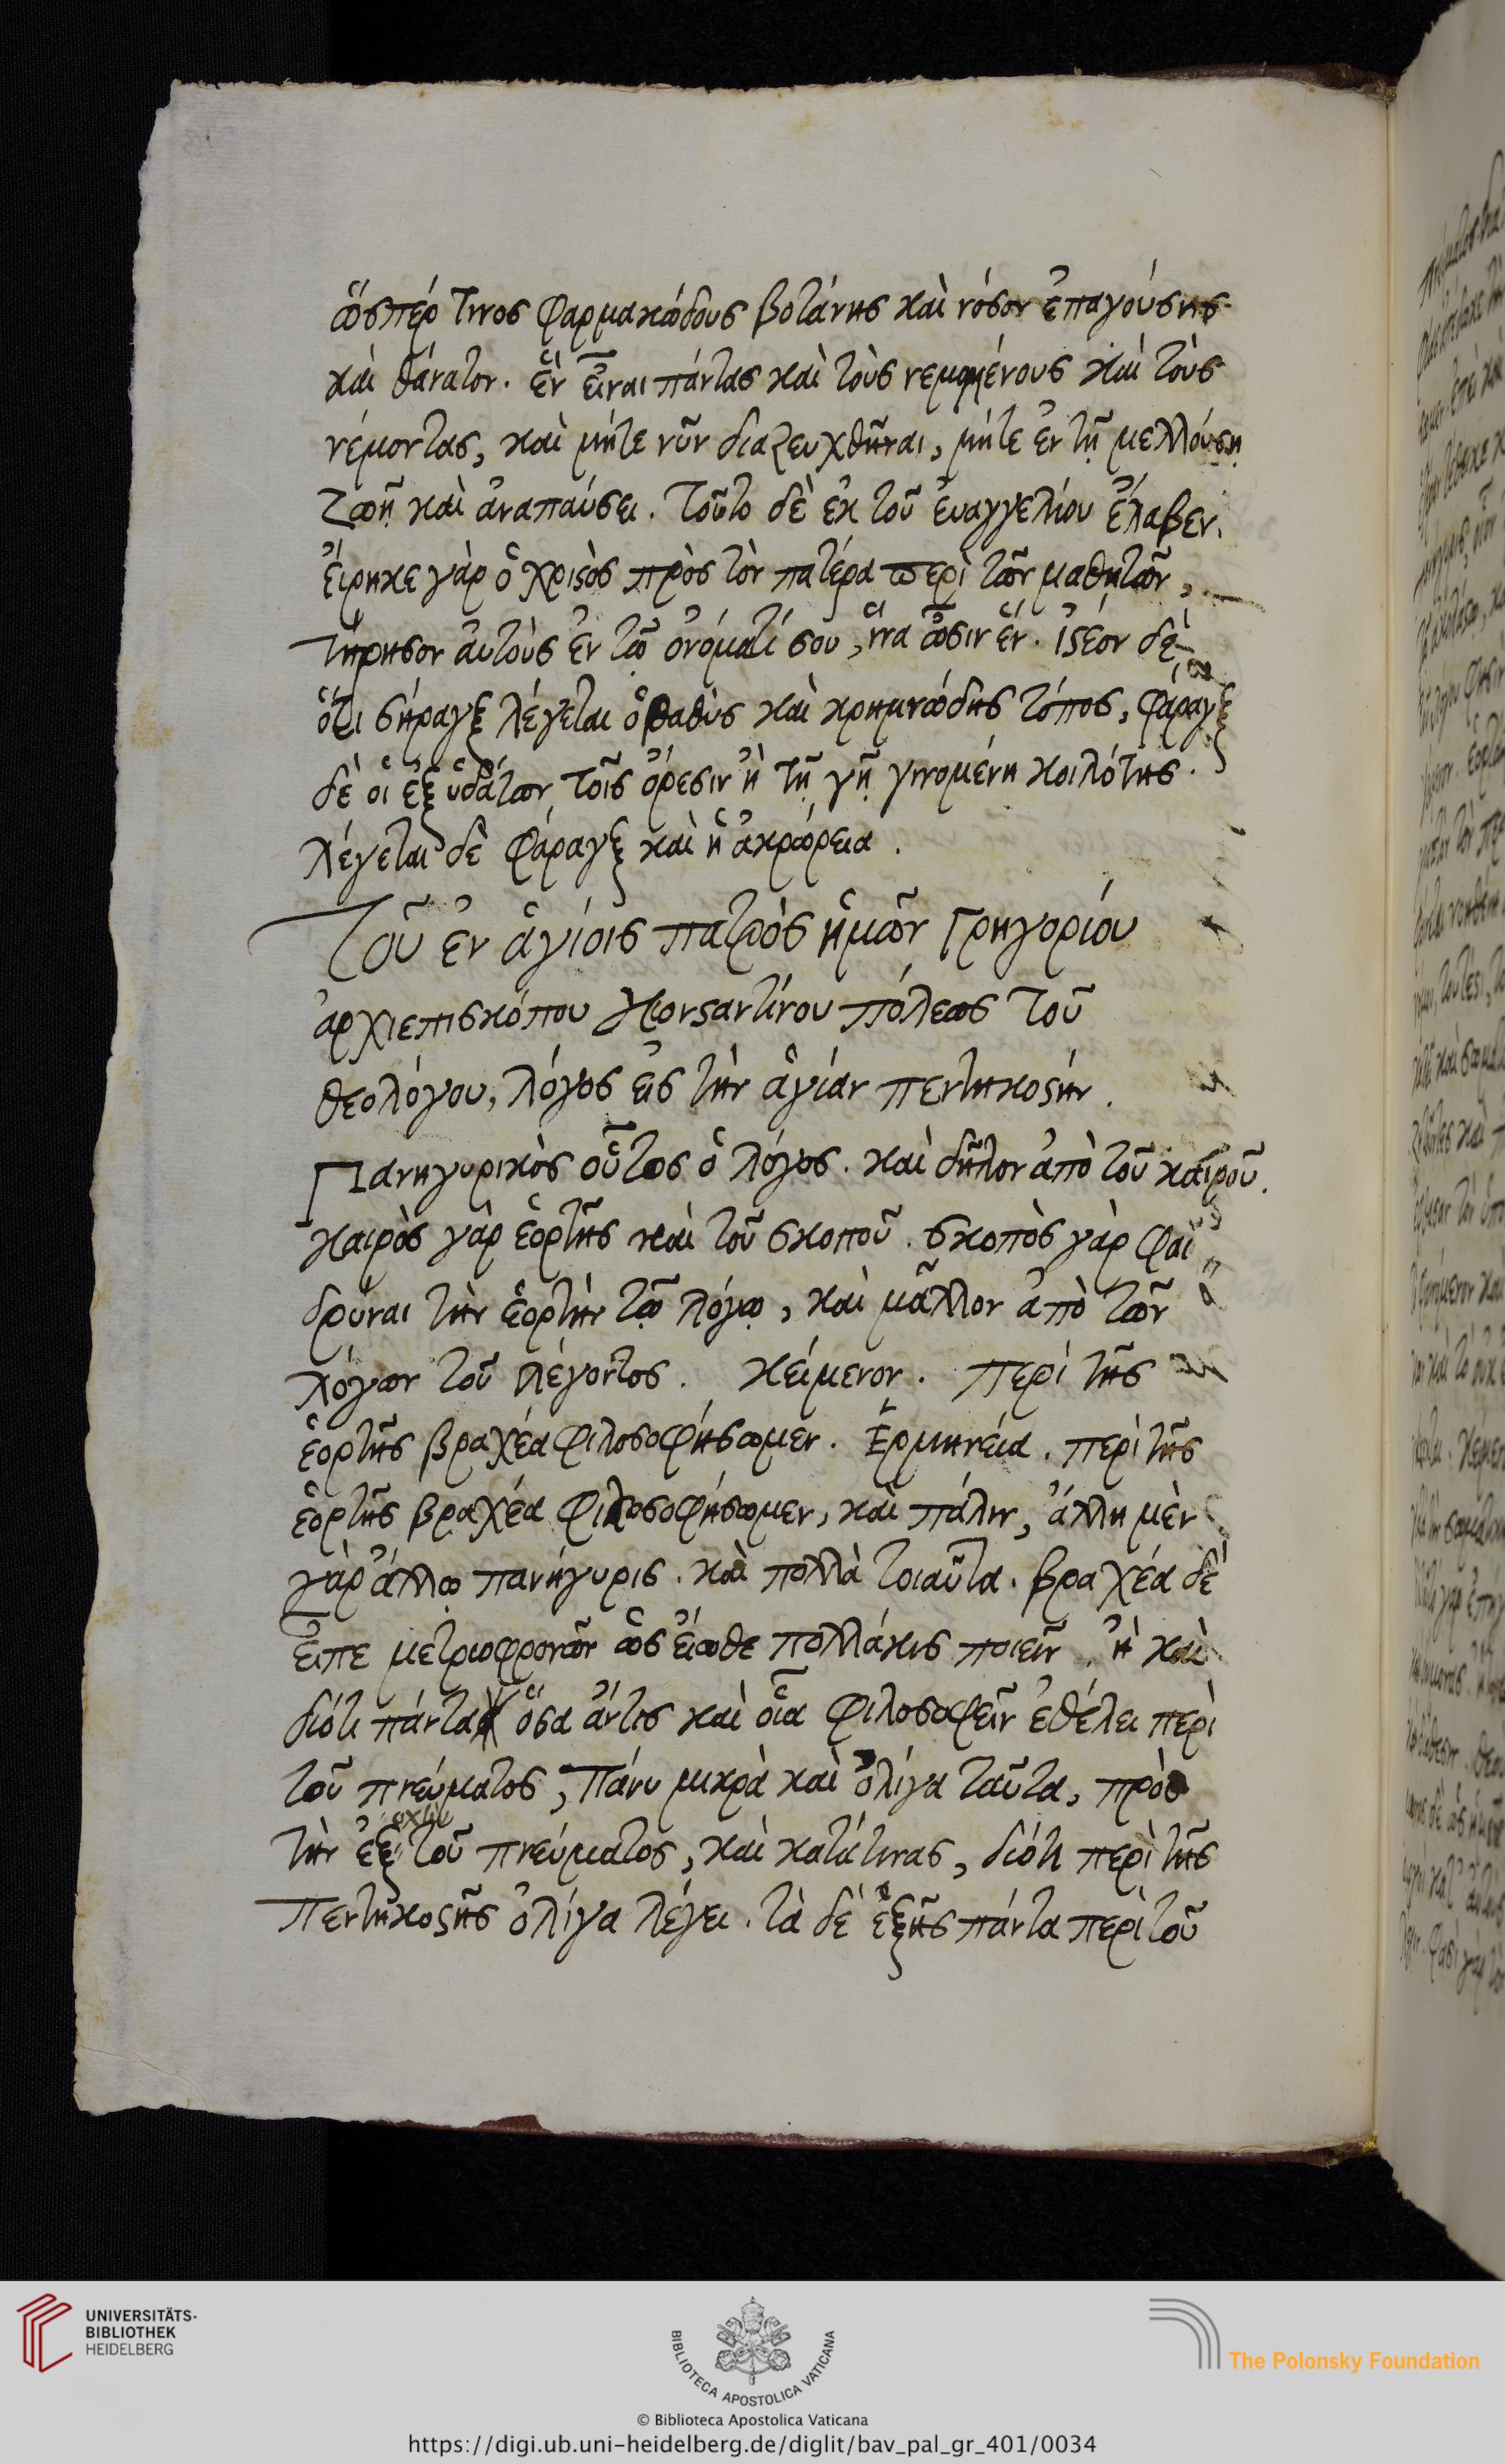 ὥσπέρ τινος φαρμακώδους βοτάνης καὶ νόσον ἐπαγούσης
καὶ θάνατον. ἓν εἶναι πάντας καὶ τοὺς νεμομένους καὶ τοὺς
νέμοντας, καὶ μήτε νῦν διαζευχθῆναι, μήτε ἐν τῇ μελλούσῃ
ζωῇ καὶ ἀναπαύσει. τοῦτο δὲ ἐκ τοῦ ἐυαγγελίου ἔλαβεν.
ἔιρηκε γὰρ ὁ χριϛὸς πρὸς τὸν πατέρα περὶ τῶν μαθητῶν,
τήρησον ἀυτοὺς ἐν τῷ ὀνόματί σου, ἵνα ὦσιν ἕν. ἰϛέον δὲ
ὅτι σήραγξ λέγεται ὁ βαθὺς καὶ κρημνώδης τόπος, φάραγξ
δὲ οἱ ἐξ ὑδάτων τοῖς ὄρεσιν ἢ τῇ γῇ γινομένη κοιλότης.
λέγεται δὲ φάραγξ καὶ ἡ ἀκρώρεια.
Τοῦ ἐν ἁγίοις πατρὸς ἡμῶν Γρηγορίου
ἀρχιεπισκόπου Κονϛαντίνου πόλεως τοῦ
θεολόγου, λόγος εἰς τὴν ἁγίαν πεντηκοϛήν.
Πανηγυρικὸς οὗτος ὁ λόγος. καὶ δῆλον ἀπὸ τοῦ καιροῦ.
καιρὸς γὰρ ἑορτῆς καὶ τοῦ σκοποῦ. σκοπὸς γὰρ φαι
δρύναι τὴν ἑορτὴν τῷ λόγῳ, καὶ μᾶλλον ἀπὸ τῶν
λόγων τοῦ λέγοντος. Κείμενον. Περὶ τῆς
ἑορτῆς βραχέα φιλοσοφήσωμεν. Ἑρμηνεία. περὶ τῆς
ἑορτῆς βραχέα φιλοσοφήσωμεν, καὶ πάλιν, ἄλλη μὲν
γὰρ ἄλλω πανήγυρις. καὶ πολλὰ τοιαῦτα. βραχέα δὲ
εἶπε μετριοφρονῶν ὡς ἔιωθε πολλάκις ποιεῖν. ἢ καὶ
διότι πάντα ὅσα ἄντις καὶ οἷα φιλοσοφεῖν ἐθέλει περὶ
τοῦ πνεύματος, πάνυ μικρὰ καὶ ὀλίγα ταῦτα, πρὸς
τὴν ἐξ τοῦ πνεύματος, καὶ κατάτινας, διότι περὶ τῆς
Πεντηκοϛῆς ὀλίγα λέγει. τὰ δὲ ἑξῆς πάντα περὶ τοῦ
UNIVERSITÄTS-
BIBLIOTHEK
HEIDELBERG
BIBLIOTECA APOSTOLICA VATICANA
The Polonsky Foundation
© Biblioteca Apostolica Vaticana
https://digi.ub.uni-heidelberg.de/diglit/bav_pal_gr_401/0034